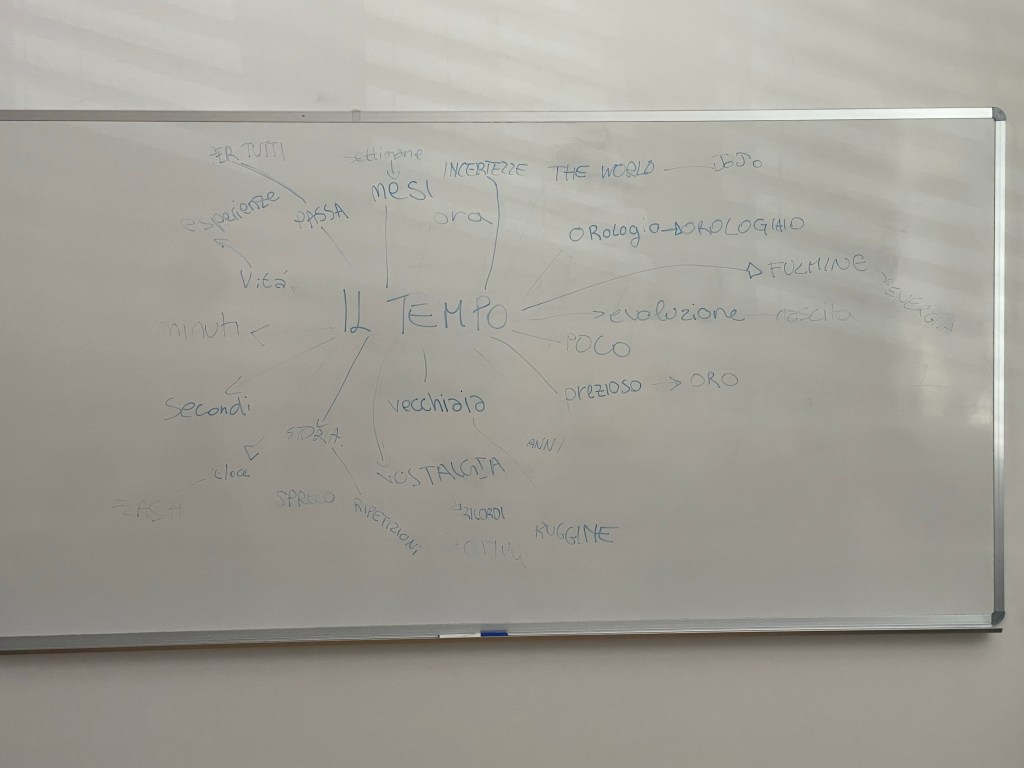 PER TUTTI
settimane
INCERTEZZE
THE WORLD
JoJo
mesi
esperienze
PASSA
ora
orologio
OROLOGIAIO
FULMINE
Vita
IL TEMPO
evoluzione
nascita
minuti
POCO
prezioso
ORO
secondi
vecchiaia
STORIA
ANNI
NOSTALGIA
SPRECO
RIPETIZIONI
RICORDI
RUGGINE